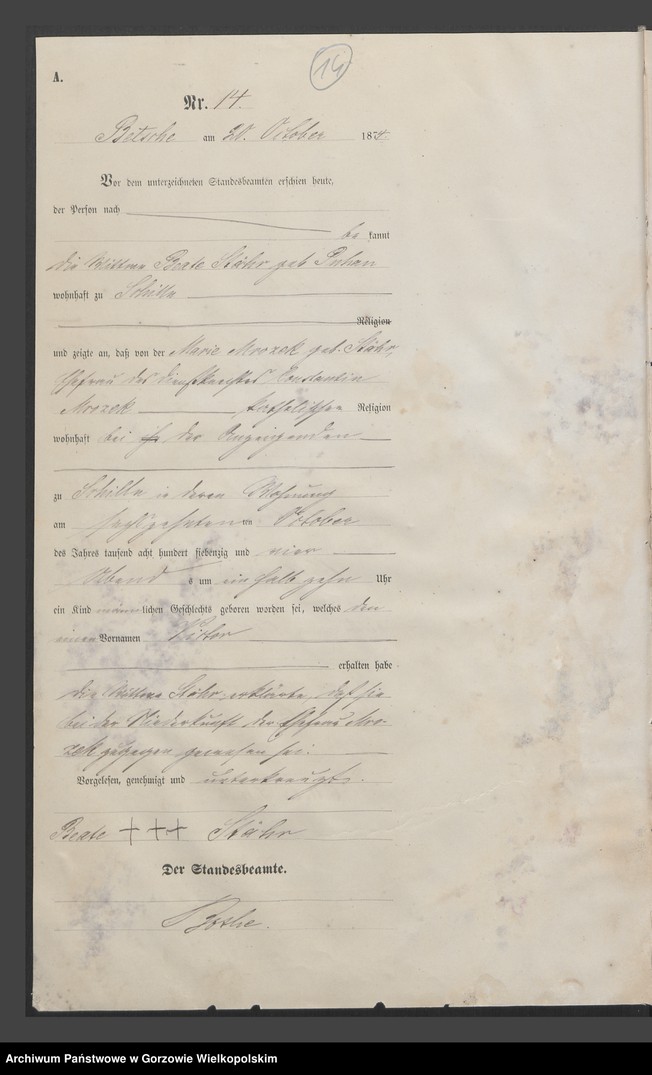 14
A.
Nr. 14.
Betsche am 20. October 1874
Vor dem unterzeichneten Standesbeamten erschien heute,
der Person nach
bekannt
die Wittwe Beate Stähr geb.
wohnhaft zu Schilln
Religion
und zeigte an, daß von der Marie Mrozek geb. Stähr,
Ehefrau des Dienstknechtes Constantin
Mrozek katholischer Religion
wohnhaft bei der Anzeigenden
zu Schilln in deren Wohnung
am sechszehnten October
des Jahres tausend acht hundert siebenzig und vier
Abends um ein halb zehn Uhr
ein Kind männlichen Geschlechts geboren worden sei, welches den
einen Vornamen Victor
erhalten habe
die Wittwe Stähr erklärte, daß sie
bei der Niederkunft der Ehefrau Mro-
zek zugegen gewesen sei.
Vorgelesen, genehmigt und unterkreuzt.
Beate +++ Stähr
Der Standesbeamte.
Bothe.
Archiwum Państwowe w Gorzowie Wielkopolskim